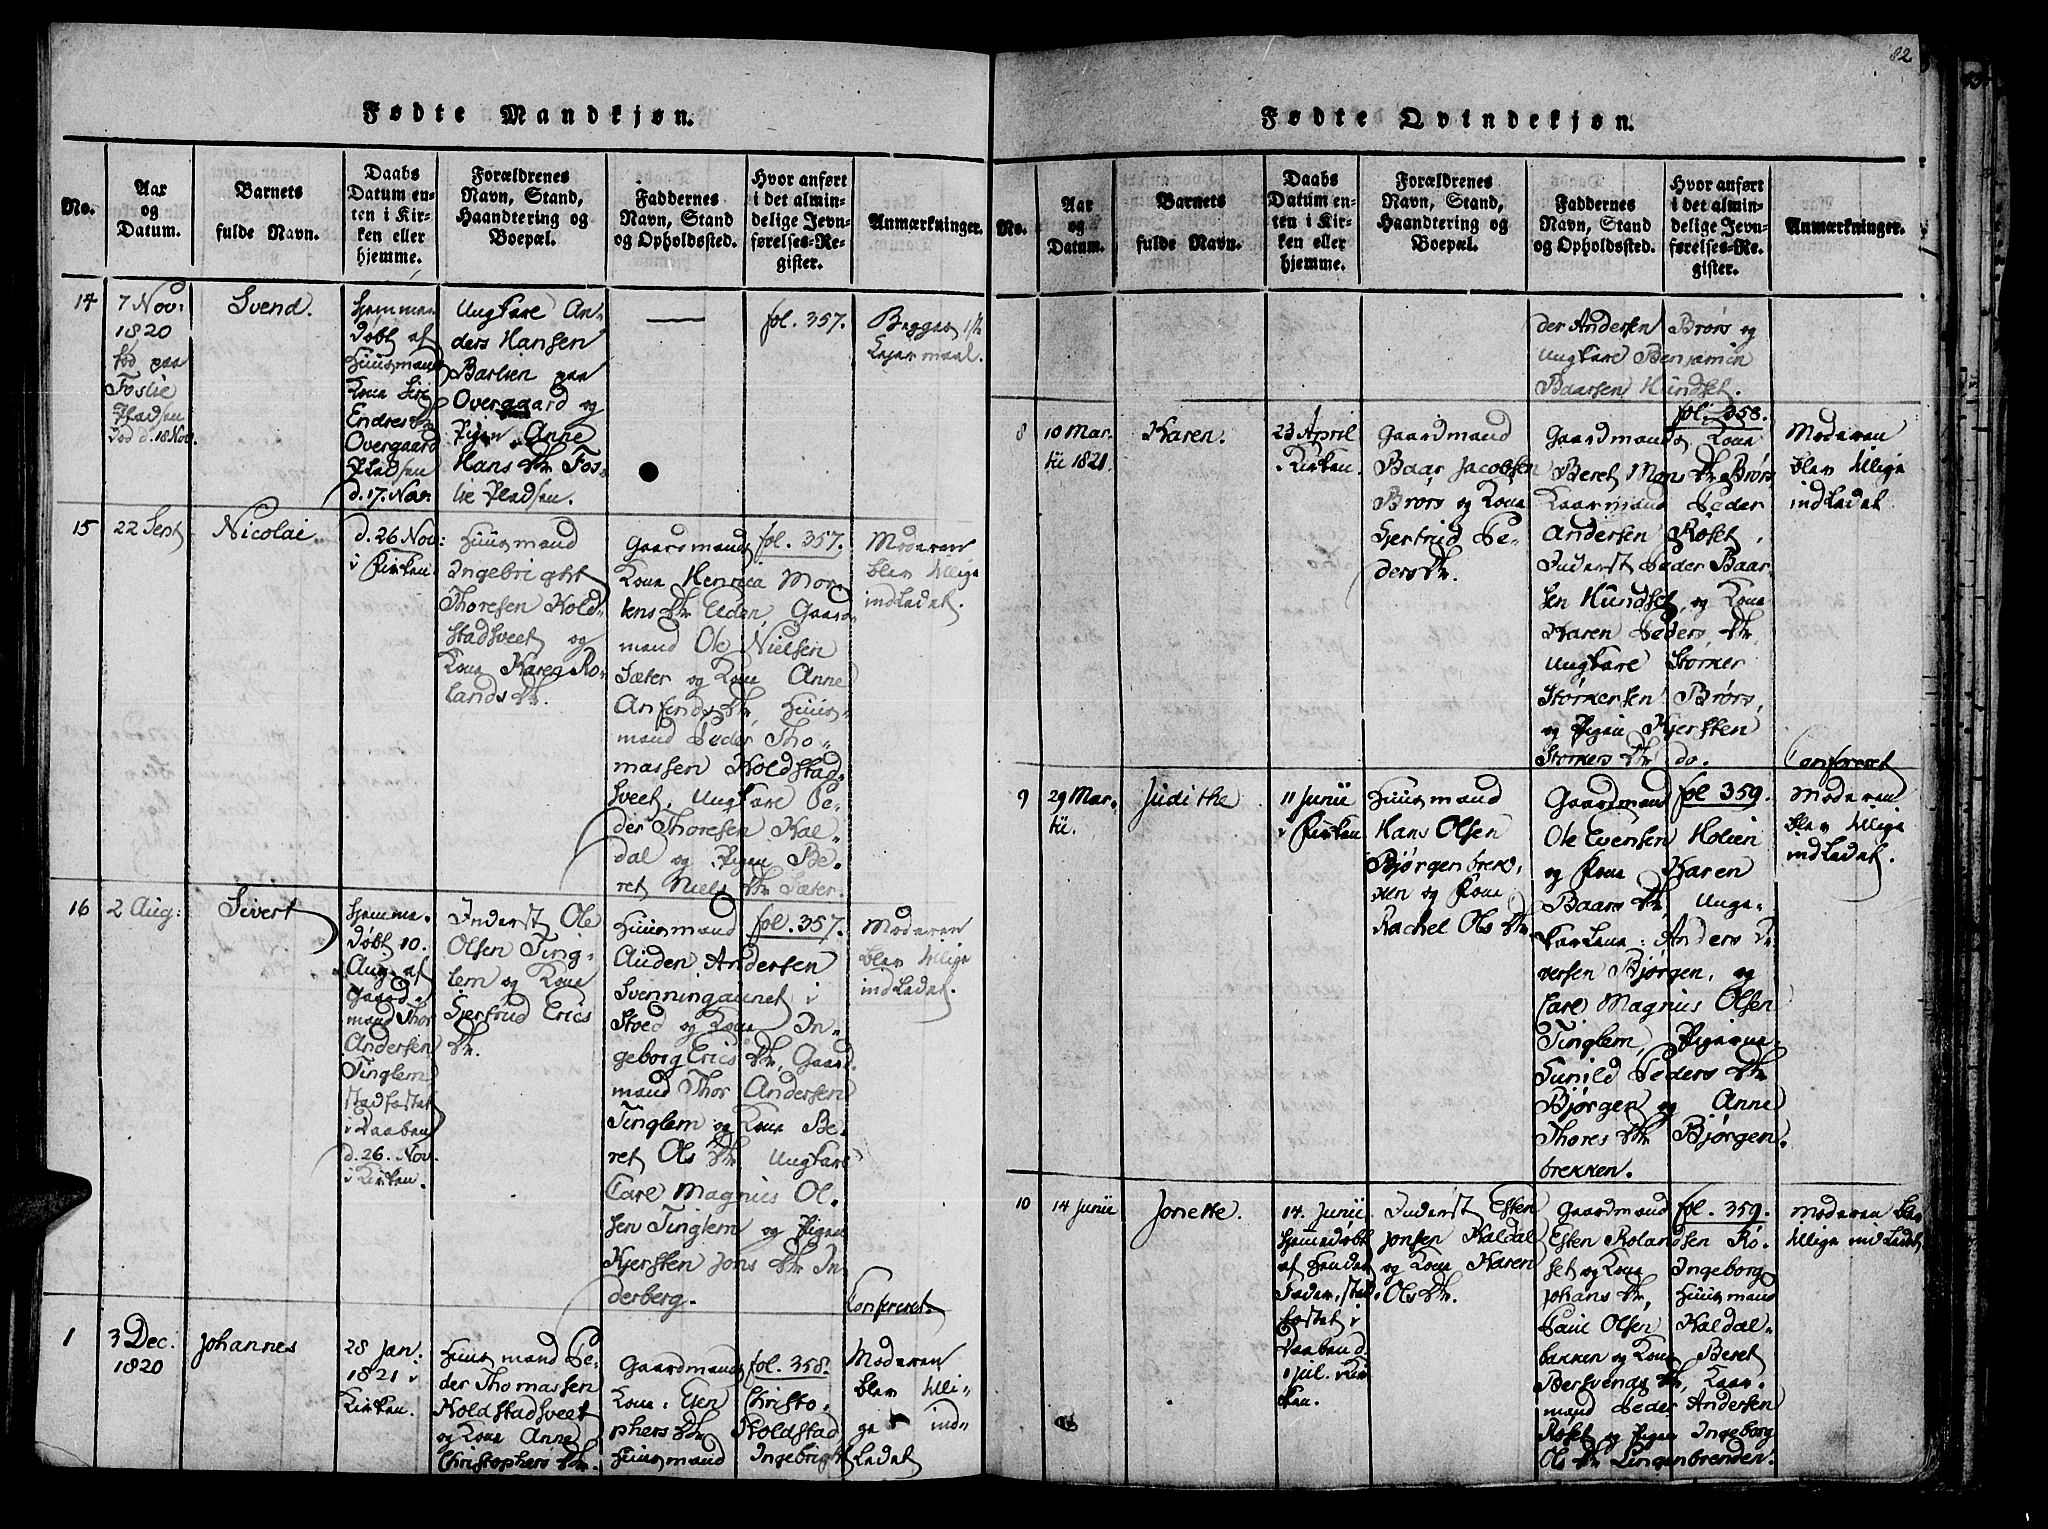 82
Fødte Mandkjøn.
No.
Aar
og
Datum.
Barnets
fulde Navn.
Daabs
Datum en-
ten i Kir-
ken eller
hjemme.
Forældrenes
Navn, Stand,
Haandtering og
Boepæl.
Faddernes
Navn, Stand
og Opholdssted.
Hvor anført
i det almin-
delige Jevn-
førelses-Re-
gister.
Anmærkninger.
14
7 Nov:
1820
fød paa
Foslie
Pladsen
død d. 18 Nov.
Svend.
hjemme
døbt af
Huusmand
Kone Siri
Endres Dtr
Overgaard
Pladsen
d. 17. Nov.
Ungkare An-
ders Hansen
Barlien paa
Overgaard og
Pigen Anne
Hans Dtr Fos-
lie Pladsen.
fol. 357.
Begges 1ste
Lejermaal.
15
22 Sept
Nicolai.
d. 26 Nov:
i Kirken.
Huusmand
Ingebright
Thoresen Kold-
stadsveet og
Kone Karen Ro-
lands Dtr.
Gaardmands
Kone Henrica Mor-
tens Dtr Elden, Gaard-
mand Ole Nielsen
Sæter og Kone Anne
Anfinds Dtr, Huus-
mand Peder Tho-
massen Koldstad-
sveet, Ungkare Pe-
der Thoresen Kal-
dal og Pigen Be-
ret Niels Dtr Sæter.
fol. 357.
Moderen
blev tillige
indledet.
16
2 Aug:
Sivert
hjemme-
døbt 10.
Aug. af
Gaard-
mand Thor
Andersen
Tinglem
stadfæstet
i Daaben
d. 26. Nov.
i Kirken.
Inderst Ole
Olsen Ting-
lem og Kone
Gjertrud Erics
Dtr.
Huusmand
Auden Andersen
Svenningaunet i
Stoed og Kone In-
geborg Erics Dtr, Gaard-
mand Thor Andersen
Tinglem og Kone Be-
ret Ols Dtr Ungkare
Carl Magnus Ol-
sen Tinglem og Pigen
Kjersten Jons Dtr In-
derberg.
fol. 357.
Moderen
blev tillige
indledet.
Confereret.
1
3 Dec.
1820
Johannes
28 Jan.
1821 i
Kirken.
Huusmand Pe-
der Thomassen
Koldstadsveet
og Kone Anne
Christophers Dtr
Gaardmands
Kone: Elen Christo-
phers Dtr Koldstad
Huusmand Ingebright
fol. 358.
Moderen
blev tilli-
ge ind-
ledet
Fødte Qvindekjøn.
No.
Aar
og
Datum.
Barnets
fulde Navn.
Daabs
Datum en-
ten i Kir-
ken eller
hjemme.
Forældrenes
Navn, Stand,
Haandtering og
Boepæl.
Faddernes
Navn, Stand
og Opholdssted.
Hvor anført
i det almin-
delige Jevn-
førelses-Re-
gister.
Anmærkninger.
der Andersen Brørs og
Ungkare Benjamin
Baarsen Hundset.
8
10 Mar-
tii 1821.
Karen.
23 April
i Kirken.
Gaardmand
Baar Jacobsen
Brørs og Kone
Gjertrud Pe-
ders Dtr.
Gaardmands Kone
Beret Mons Dtr Brørs,
Gaardmand Peder
Andersen Roset,
Inderst Peder Baar-
sen Hundset, og Kone
Karen Peders Dtr
Ungkare Størker
Størkersen Brørs,
og Pigen Kjersten
Størkers Dtr do.
fol. 358.
Moderen
blev tillige
indledet.
Confereret
9
29 Mar-
tii.
Judithe
11 Junii
i Kirken
Huusmand
Hans Olsen
Bjørgenbrek-
ken og Kone
Rachel Ols Dtr
Gaardmand
Ole Evensen Holien
og Kone Karen
Baars Dtr, Unge-
karlene: Anders I-
versen Bjørgen, og
Carl Magnus Olsen
Tinglem, Pigerne
Gunild Peders Dtr
Bjørgen og Anne
Thores Dtr Bjørgen-
brekken.
fol 359.
Moderen
blev tillige
indledet.
10
14 Junii
Jonette.
14. Junii
hjemmedøbt
af Fader, stad-
fæstet i
Daaben d.
1 Jul. i Kir-
ken.
Inderst Esten
Jonsen Kaldal
og Kone Karen
Ols Dtr.
Gaardmand
Esten Rolandsen Ro-
set og Kone Ingeborg
Johans Dtr, Huusmand
Paul Olsen Kaldal-
bakken og Kone Beret
Bersvends Dtr, Gaar-
mand Peder Andersen
Roset og Pigen Ingeborg
Ols Dtr Lingenbrenden.
fol. 359.
Moderen blev
tillige indledet.